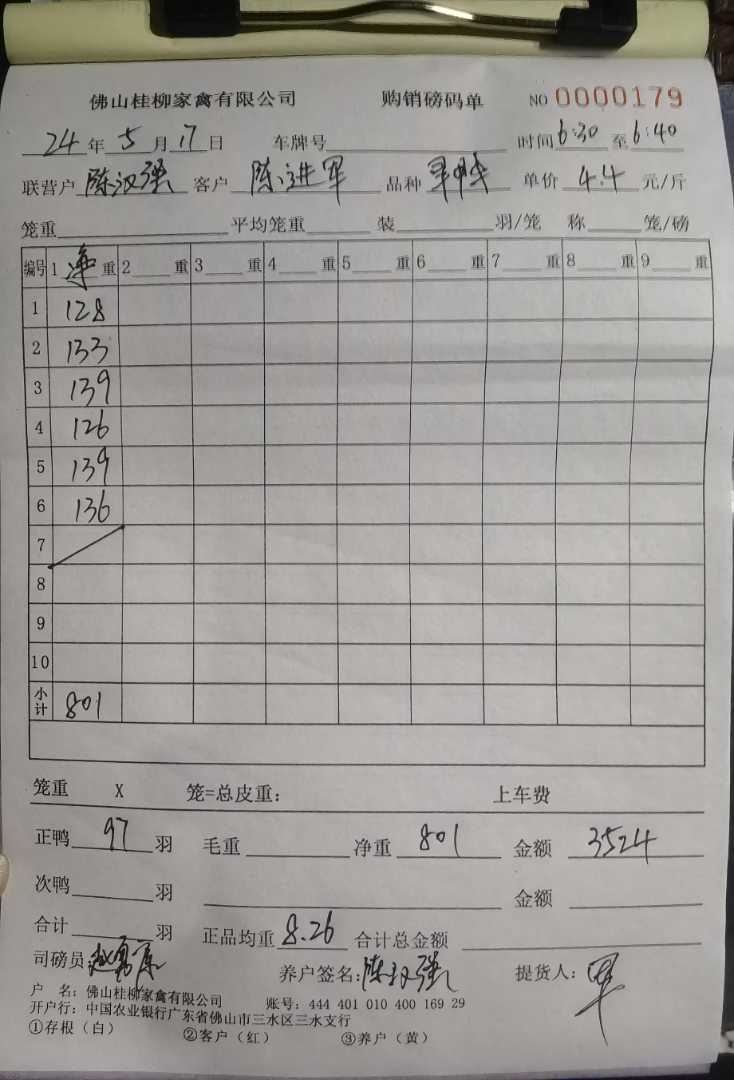 佛山桂柳家禽有限公司 购销磅码单 NO 0000179
24年5月17日 车牌号 时间6:30至6:40
联营户 陈汉强 客户 陈进军 品种 单价 4.4 元/斤
笼重 平均笼重 装 羽/笼 称 笼/磅
编号 1 净 重 2 重 3 重 4 重 5 重 6 重 7 重 8 重 9 重
1 128
2 133
3 139
4 126
5 139
6 136
7
8
9
10
小计 801
笼重 X 笼=总皮重: 上车费
正鸭 97 羽 毛重 净重 801 金额 3524
次鸭 羽 金额
合计 羽 正品均重 8.26 合计总金额
司磅员: 养户签名: 陈汉强 提货人: 军
户 名: 佛山桂柳家禽有限公司 账号: 444 401 010 400 169 29
开户行: 中国农业银行广东省佛山市三水区三水支行
①存根(白) ②客户(红) ③养户(黄)